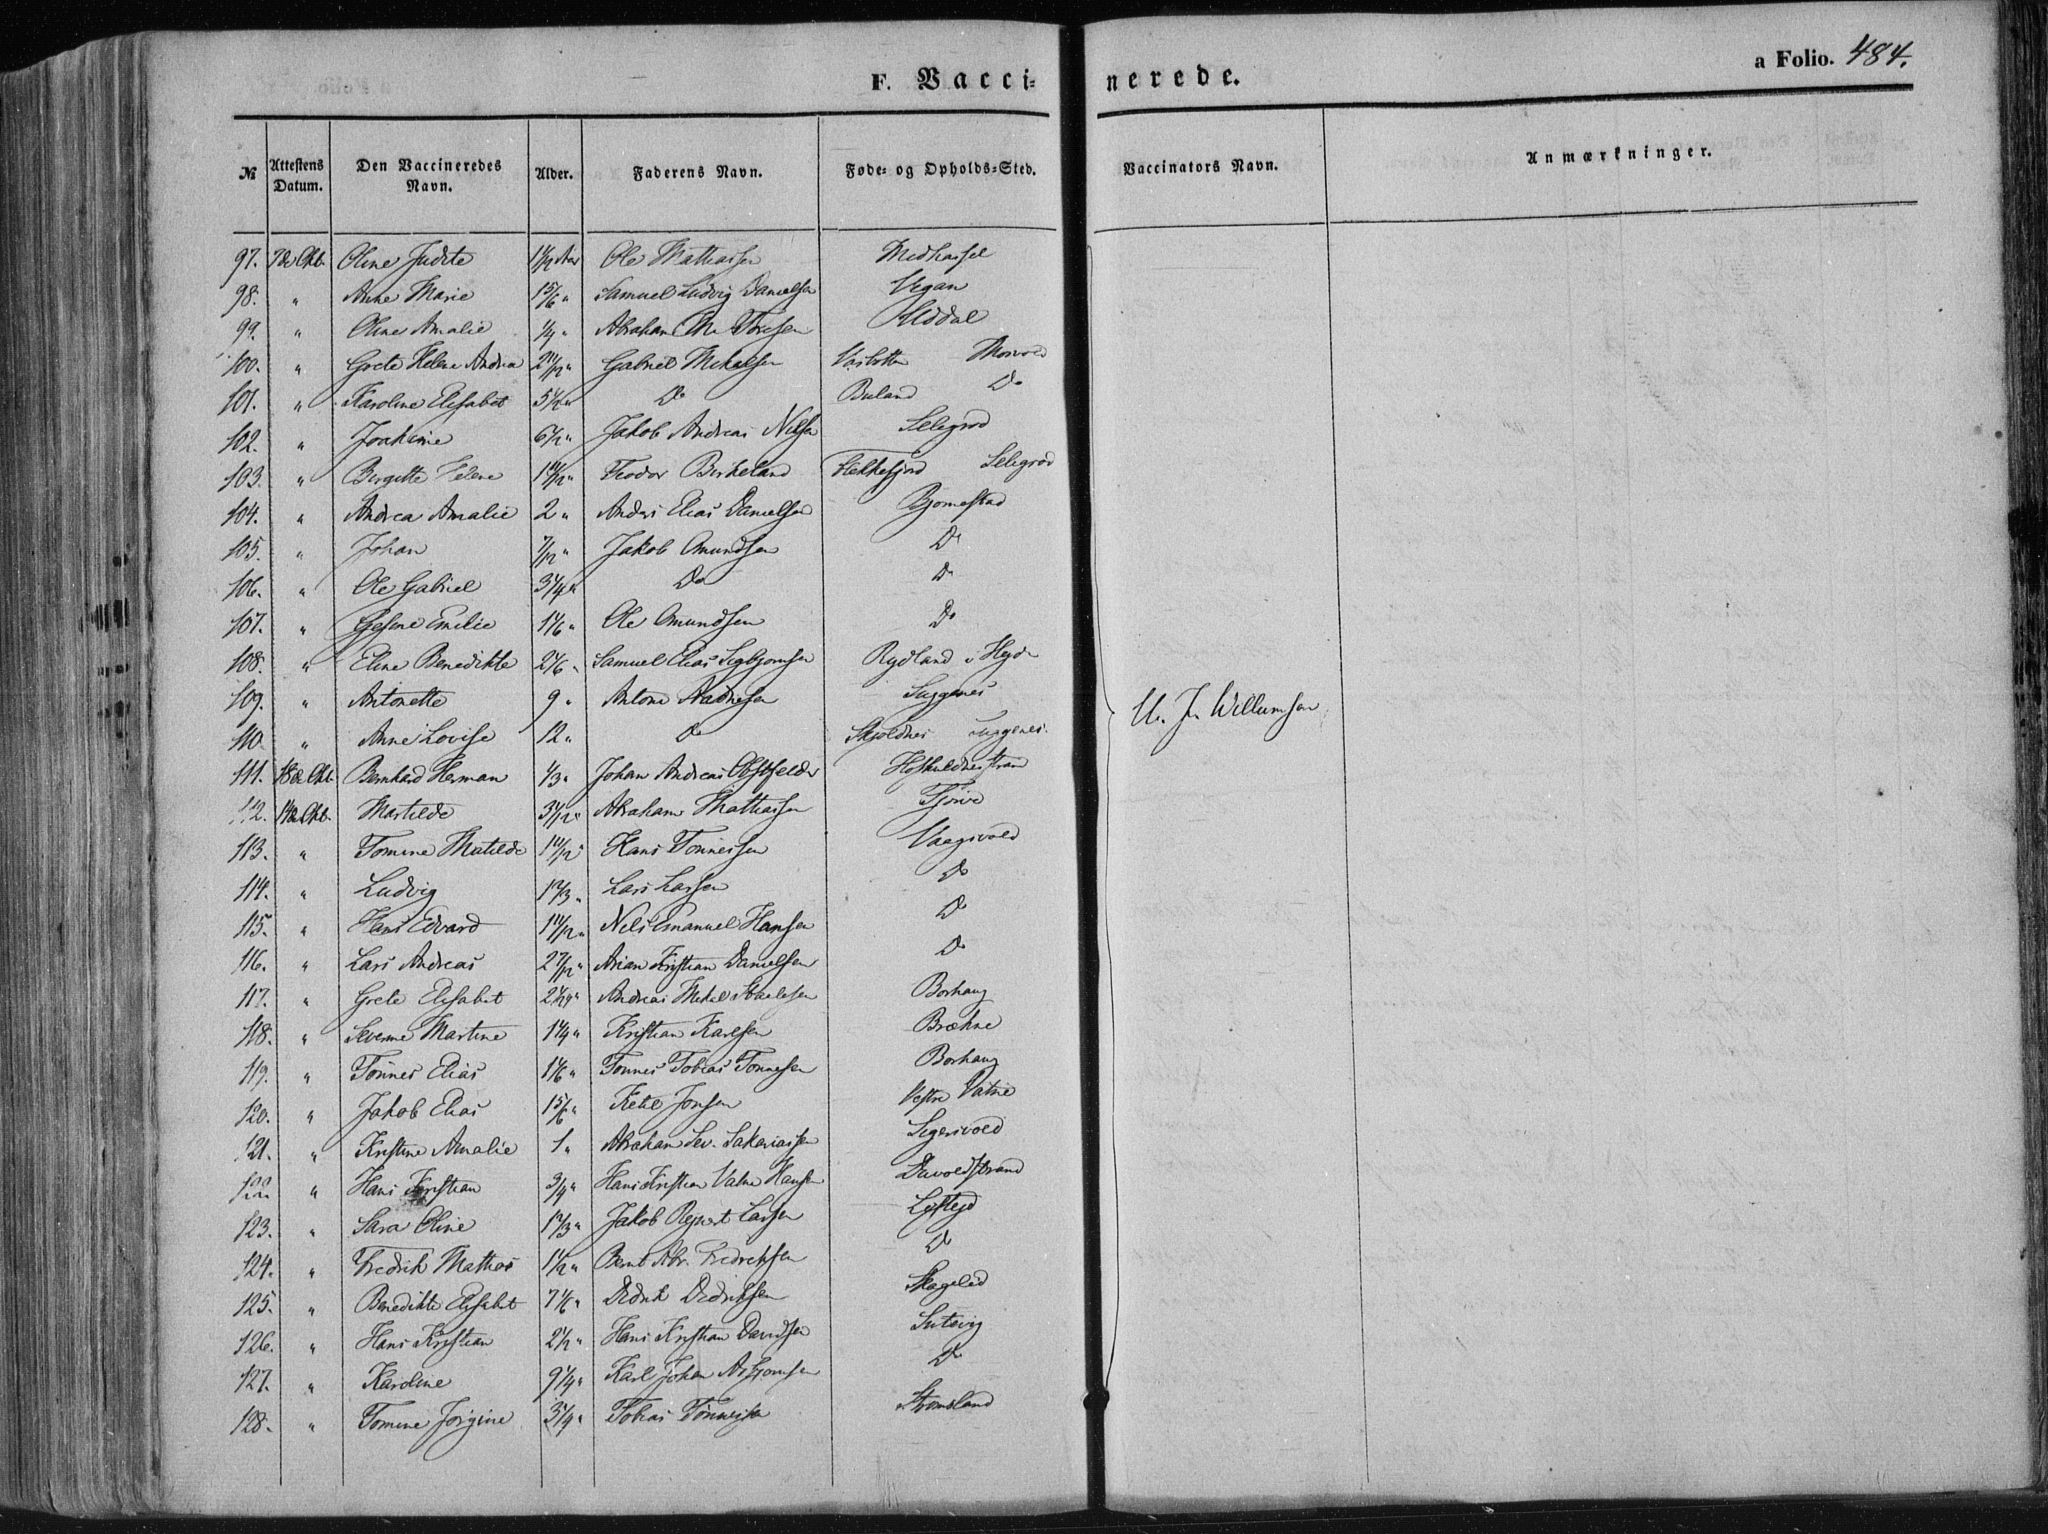 F. Vaccinerede.
a Folio. 484.
№ Attestens Datum. Den Vaccineredes Navn. Alder. Faderens Navn. Føde- og Opholds-Sted. Vaccinators Navn. Anmærkninger.
97. 7de Okb. Oline Judite 1 1/2 Aar Ole Mathiassen Midhassel
98. " Anne Marie 1 5/6 " Samuel Ludvig Danielsen Vegan
99. " Oline Amalie 1/4 " Abraham Toresen Uddal
100. " Grete Helene Andrea 2 11/12 " Gabriel Mikalsen Vasbotten
101. " Karoline Elisabet 5 1/2 " Do Buland Do
102. " Joakime Jakob Andreas Nilsen Selegrod
103. " Birgitte Helene 1 11/12 " Teodor Birkeland Flekkefjord Selegrod
104. " Andrea Amalie 2 " Anders Elias Danielsen Bjornestad
105. " Johan 7/12 " Jakob Omundsen Do
106. " Ole Gabriel 3 1/4 " Do Do
107. " Gesine Emilie 1 1/6 " Ole Omundsen Do
108. " Eline Benedikte 2 1/6 " Samuel Elias Sigbjornsen Rydland i Heyd
109. " Antonette 9 " Anton Aadnesen Siggenes
110. " Anne Lovise 12 " Do Skjoldnes Siggenes.
U. J. Willumsen
111. 18de Okb. Bernhard Herman 1/3 " Johan Andreas Obstfelder
112. Okb. Martilde Abraham Mathiassen Tjorve
113. " Tomine Matilde 1 11/12 " Hans Tonnessen Vaagsvold
114. " Ludvig 1 2/3 " Lars Larsen Do
115. " Hans Edvard 1 11/12 " Nils Emanuel Hansen Do
116. " Lars Andreas 2 7/12 " Arian Kristian Danielsen Do
117. " Grete Elisabet Andreas Mikal Borhaug
118. " Severine Martine 1 1/4 " Kristian Karlsen Brækne
119. " Tønnes Elias 1 1/6 " Tonnes Tobias Tonnesen Borhaug
120. " Jakob Elias 1 5/6 " Ketil Jonsen Vestre Vatne
121. " Kristine Amalie 1 " Abraham Sev. Sakariassen Sigersvold
122. " Hans Kristian 3/4 " Hans Kristian Vatne Hansen
123. " Sara Oline 1 2/3 " Jakob Reinert Larsen
124. " Fredrik Mathias 1 1/2 " Bernt Abr. Fredriksen Do
125. " Benedikte Elisabet 7 1/6 " Didrik Didriksen Skageled
126. " Hans Kristian 2 1/2 " Hans Kristian Davidsen
127. " Karoline 9 1/4 " Karl Johan Asbjornsen Do
128. " Tomine Jorgine 3 1/4 " Tobias Tønnessen Stromsland